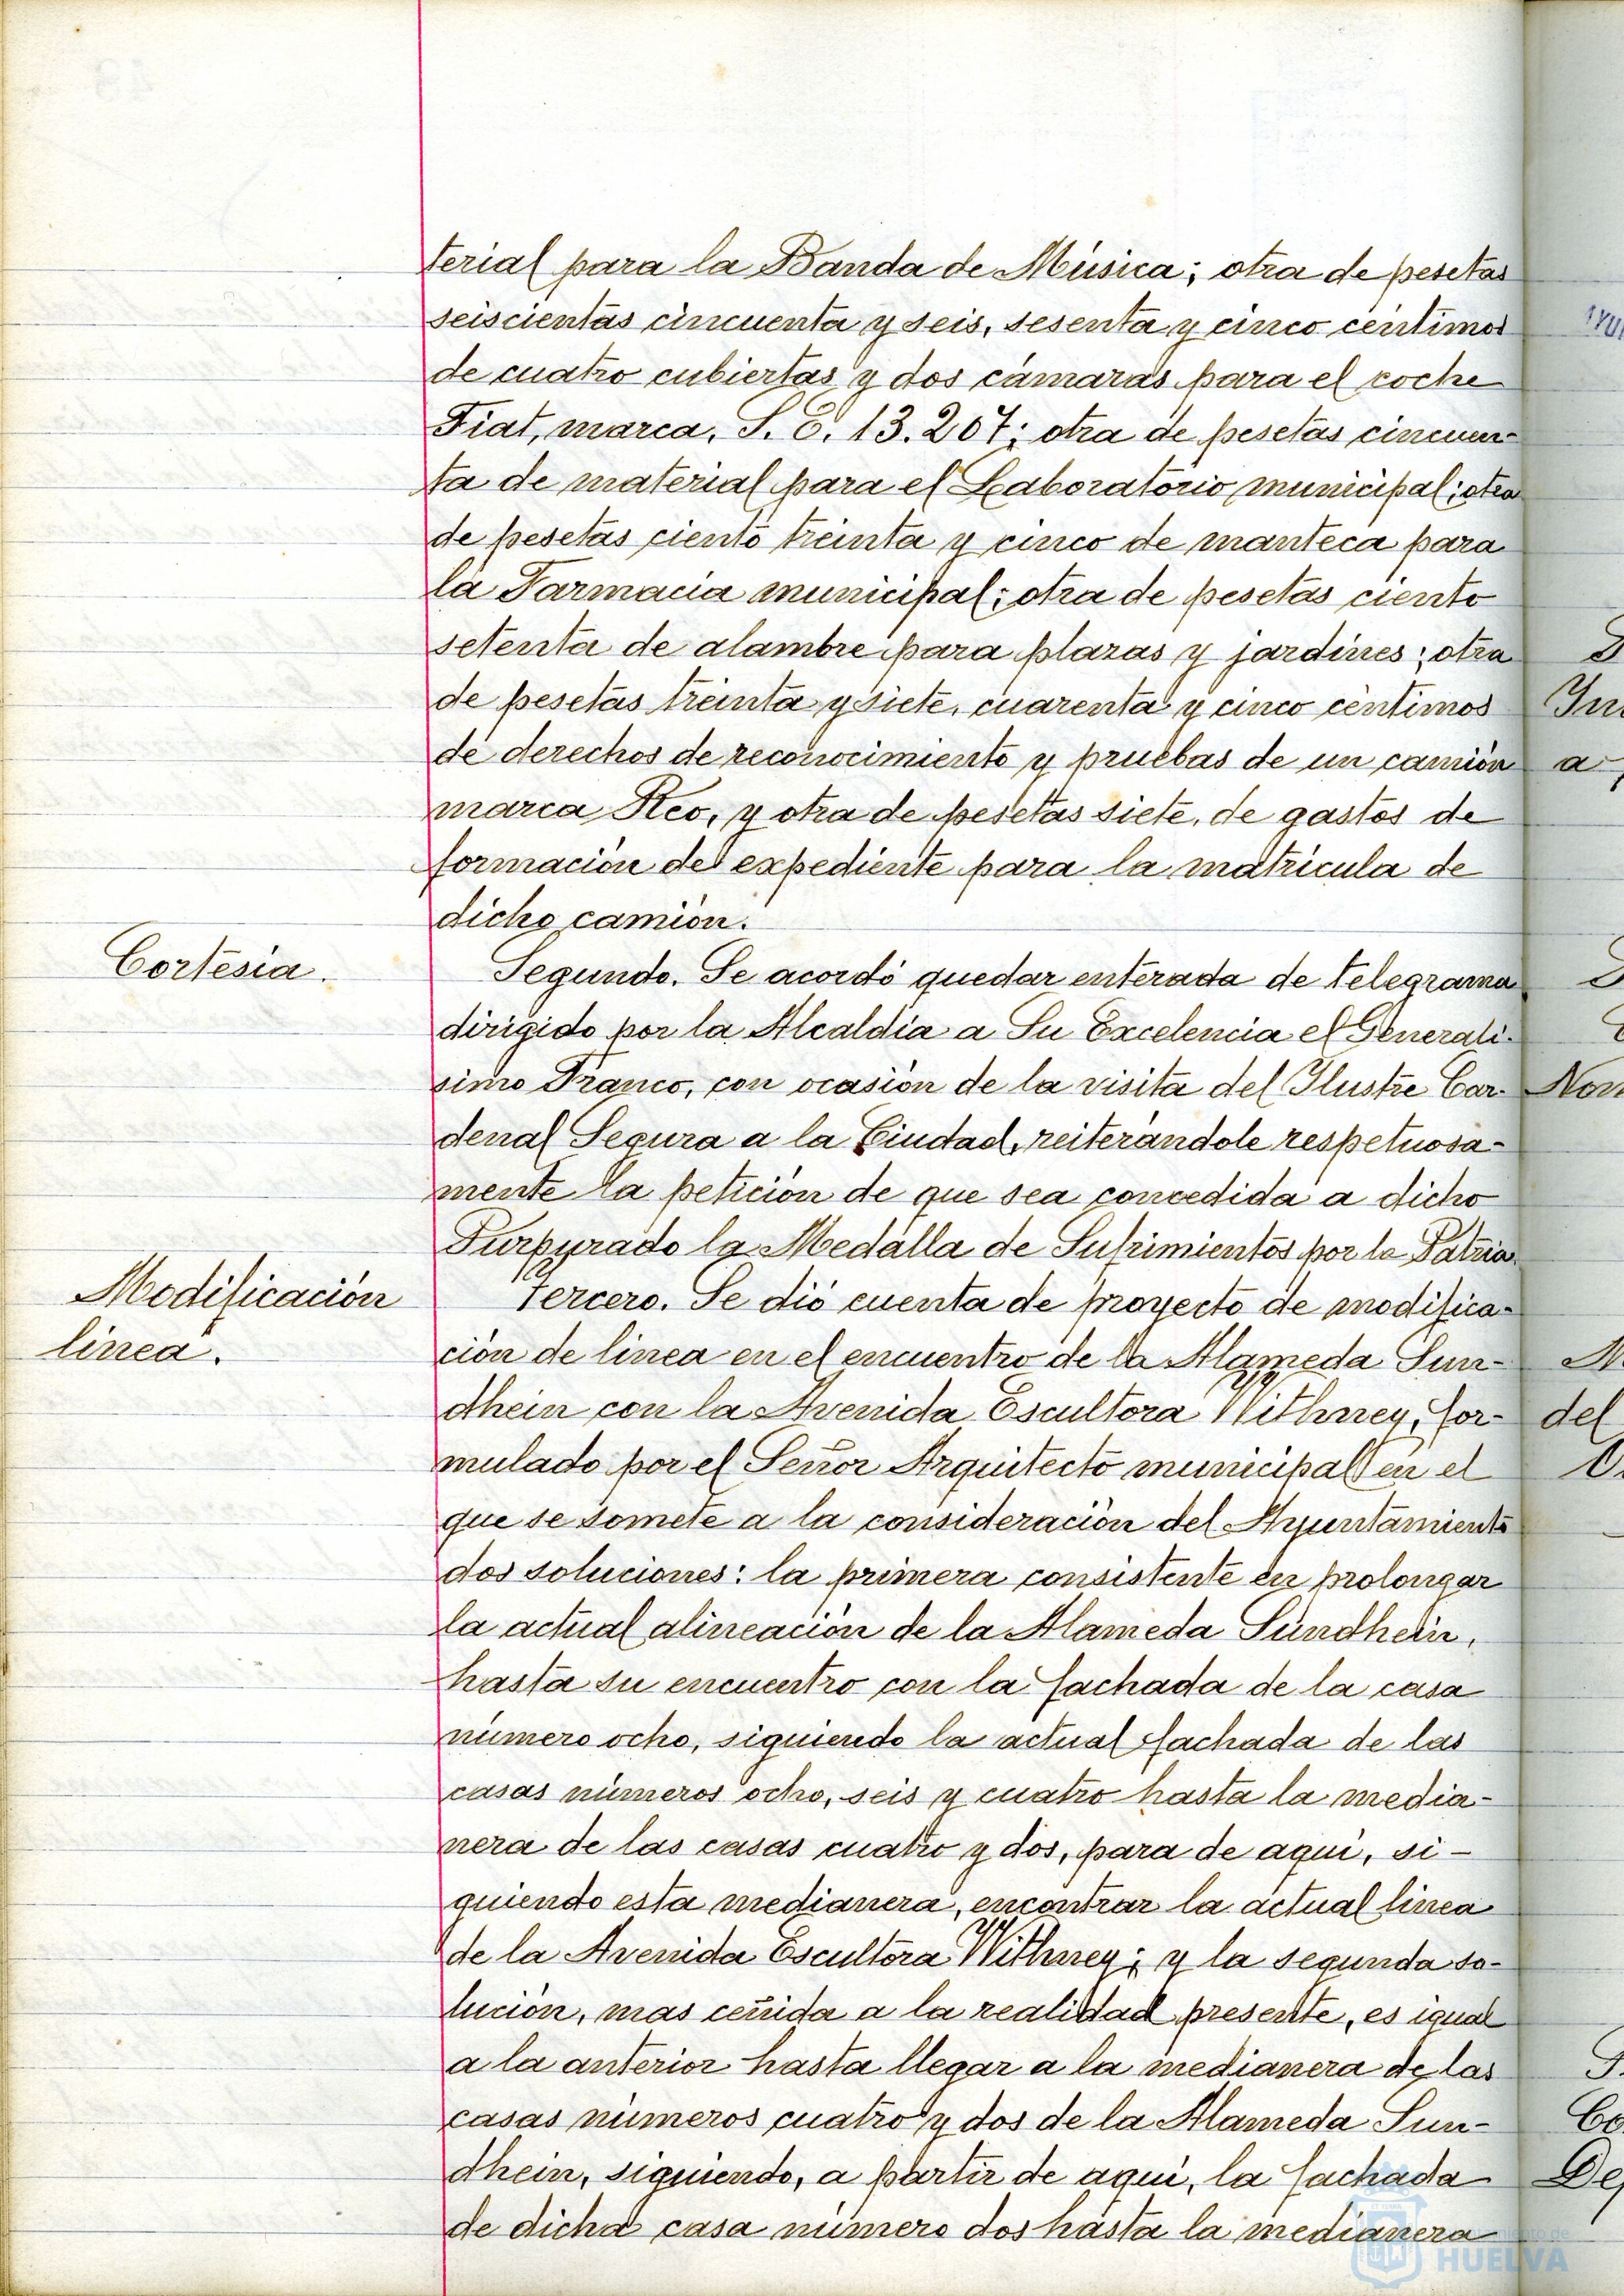 terial para la Banda de Música; otra de pesetas
seiscientas cincuenta y seis, sesenta y cinco centimos
de cuatro cubiertas y dos cámaras para el coche
Fiat, marca, S. E. 13.207; otra de pesetas cincuen-
ta de material para el Laboratorio municipal; otra
de pesetas ciento treinta y cinco de manteca para
la Farmacia municipal; otra de pesetas ciento
setenta de alambre para plazas y jardines; otra
de pesetas treinta y siete, cuarenta y cinco centimos
de derechos de reconocimiento y pruebas de un camión
marca Reo, y otra de pesetas siete, de gastos de
formación del expediente para la matricula de
dicho camión.
Cortesia.
Segundo. Se acordó quedar enterada de telegrama
dirigido por la Alcaldia a Su Excelencia el Generali-
simo Franco, con ocasión de la visita del Ilustre Car-
denal Segura a la Ciudad, reiterándole respetuosa-
mente la petición de que sea concedida a dicho
Purpurado la Medalla de Sufrimientos por la Patria.
Modificación
linea.
Tercero. Se dió cuenta de proyecto de modifica-
ción de linea en el encuentro de la Alameda Sun-
dhein con la Avenida Escultora Withney, for-
mulado por el Señor Arquitecto municipal en el
que se somete a la consideración del Ayuntamiento
dos soluciones: la primera consistente en prolongar
la actual alineación de la Alameda Sundhein,
hasta su encuentro con la fachada de la casa
número ocho, siguiendo la actual fachada de las
casas números ocho, seis y cuatro hasta la media-
nera de las casas cuatro y dos, para de aqui, si-
guiendo esta medianera, encontrar la actual linea
de la Avenida Escultora Withney; y la segunda so-
lución, mas ceñida a la realidad presente, es igual
a la anterior hasta llegar a la medianera de las
casas números cuatro y dos de la Alameda Sun-
dhein, siguiendo, a partir de aqui, la fachada
de dicha casa número dos hasta la medianera
HUELVA